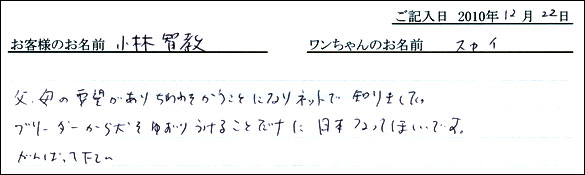 ご記入日 2010年12月22日
お客様のお名前 小林智教 ワンちゃんのお名前 スカイ
父、母の要望がありちわわをかうことになりネットで知りました。
ブリーダーから犬をゆずりうけることだけに日本なってほしいです。
がんばって下さい